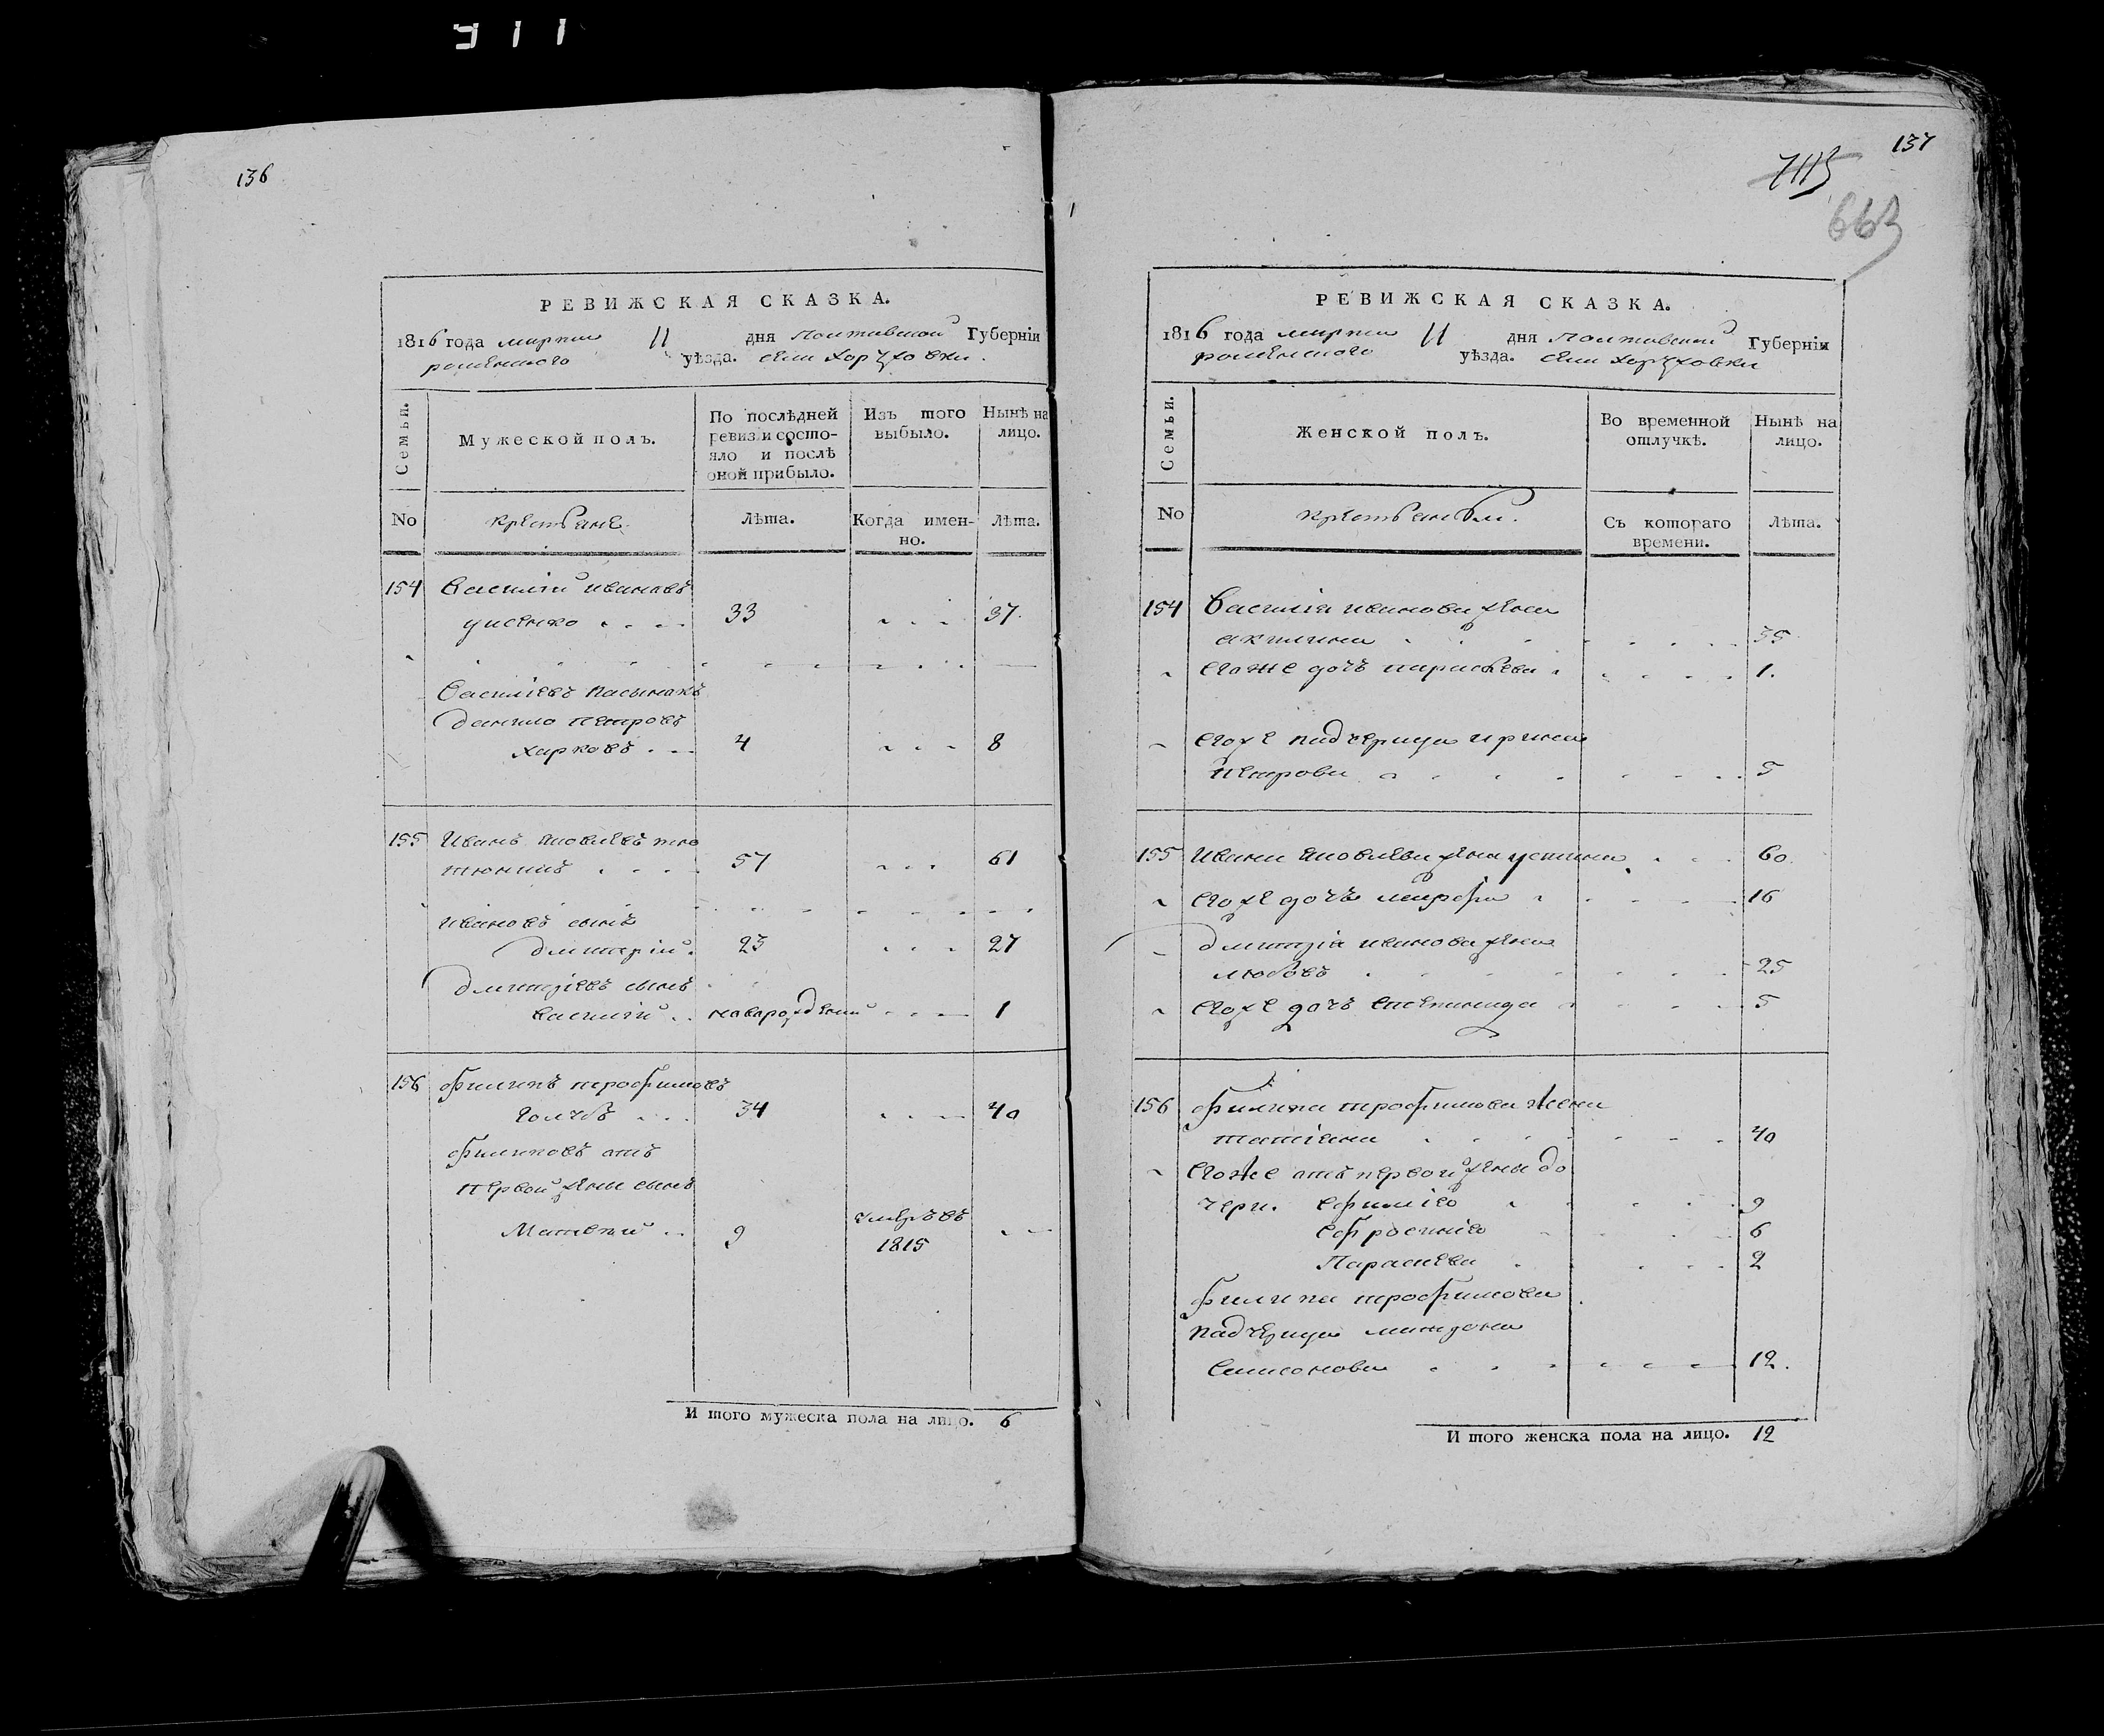 911
136
РЕВИЖСКАЯ СКАЗКА.
1816 года марта 11 дня полтавской Губерніи
роменского уѣзда. села
Семьи.
Мужеской полъ.
По послѣдней
ревизіи состо-
яло и послѣ
оной прибыло.
Изъ того
выбыло.
Нынѣ на
лицо.
No
крестьяне
лѣта.
Когда имен-
но.
лѣта.
154 Василій Ивановъ
33 37
Василіевъ пасынокъ
данило петровъ
харковъ 4 8
155 Иванъ яковлевъ тю
тюникъ 57 61
ивановъ сынъ
дмитрій 23 27
дмитріевъ сынъ
василій новорожденій 1
156 филипъ трофимовъ
34 40
филиповъ отъ
первой жены сынъ
Матвей 9 умеръ въ
1815
И того мужеска пола на лицо. 6
137
7115
663
РЕВИЖСКАЯ СКАЗКА.
1816 года марта 11 дня полтавской Губерніи
роменского уѣзда. села
Семьи.
Женской полъ.
Во временной
отлучкѣ.
Нынѣ на
лицо.
No
крестьянки.
Съ котораго
времени.
лѣта.
154 Василія иванова жена
акилина 35
его же дочь параскева 1.
его же падчерица ирина
петрова 5
155 Ивана яковлева жена устина 60
его же дочь марфа 16
дмитрія иванова жена
любовь 25
его же дочь степанида 5
156 филипа трофимова жена
татіана 40
его же отъ первой жены до
чери. ефимія 9
ефросинія 6
Параскева 2
филипа трофимова
падчерица
Симонова 12.
И того женска пола на лицо. 12